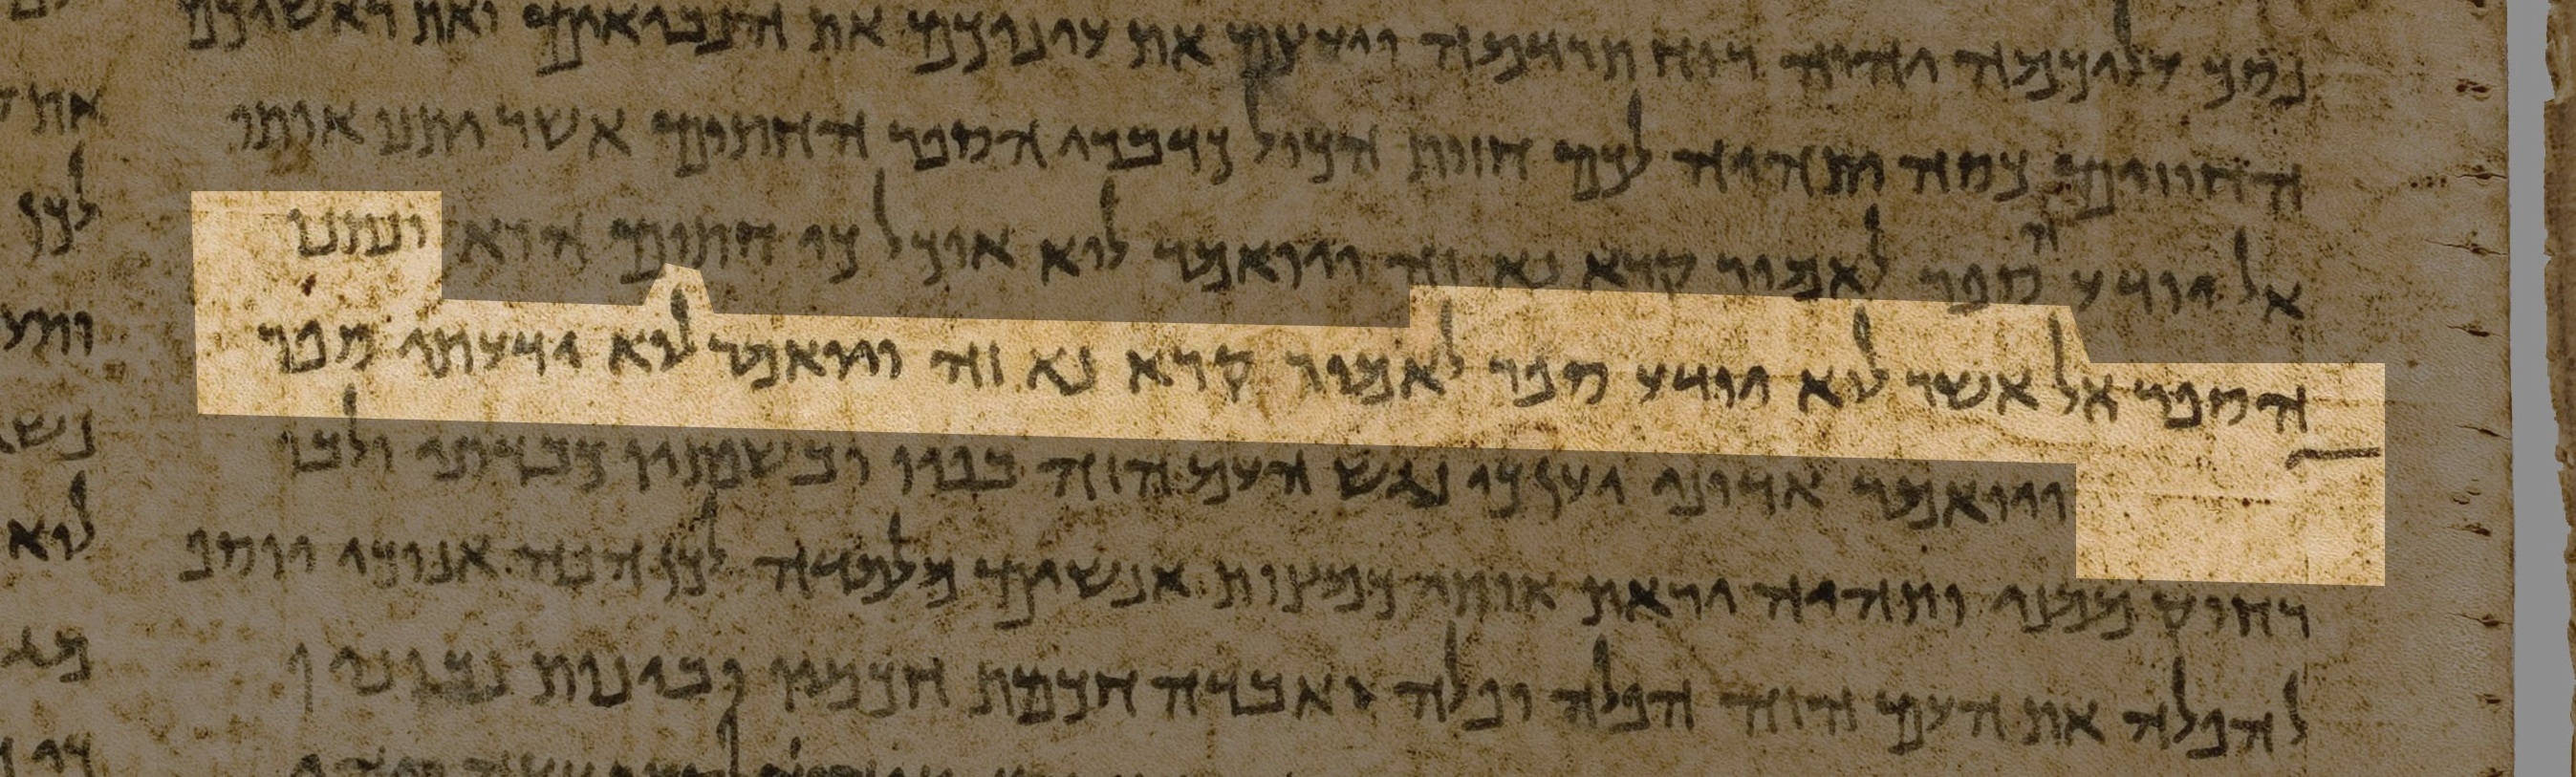 נסך עליכמה יהוה רוח תרדמה ויעצם את עיניכם את הנביאים ואת ראשיכם
החוזים כסה ותהיה לכם חזות הכול כדברי הספר החתום אשר יתנו אותו
אל יודע הספר לאמור קרא נא זה ויואמר לוא אוכל כי חתום הוא ונתנו
הספר אל אשר לוא יודע ספר לאמור קרא נא זה ויאמר לוא ידעתי ספר
ויואמר אדוני יען כי נגש העם הזה בפיו ובשפתיו כבדני ולבו
רחוק ממני ותהיה יראת אותי כמצות אנשים מלמדה לכן הנה אנוכי יוסף
להפלה את העם הזה הפלה ופלה ואבדה חכמת חכמיו ובינות נבוניו
לכן
לוא